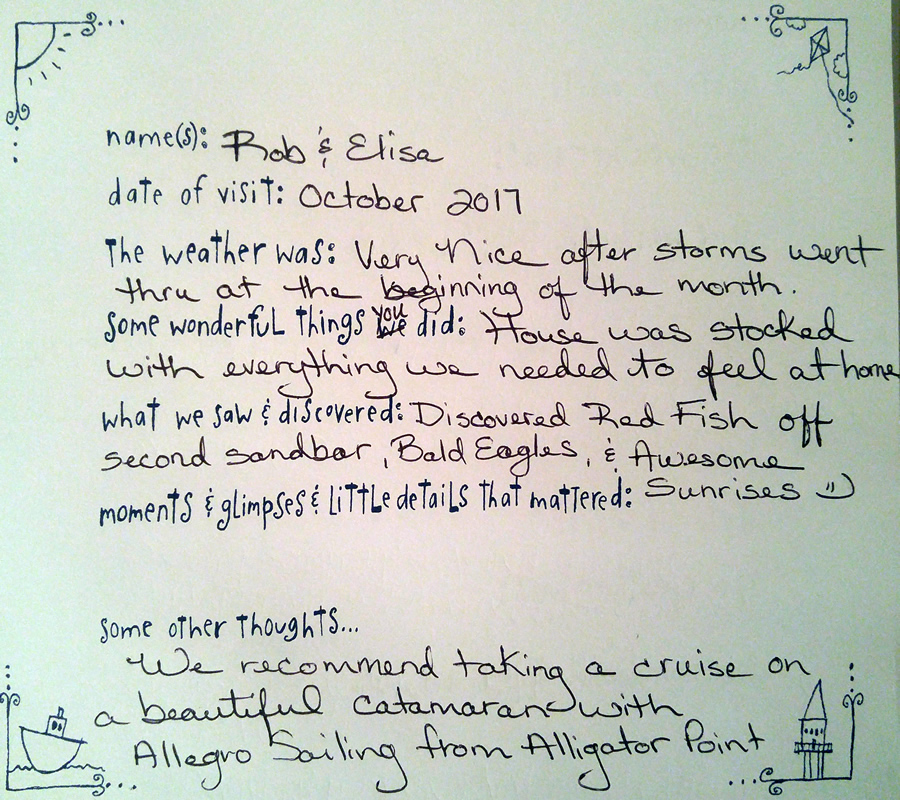 name(s): Rob & Elisa
date of visit: October 2017
The weather was: Very Nice after storms went
thru at the beginning of the month.
some wonderful things you did: House was stocked
with everything we needed to feel at home
what we saw & discovered: Discovered Red Fish off
second sandbar, Bald Eagles, & Awesome
moments & glimpses & little details that mattered: Sunrises :)
some other thoughts...
We recommend taking a cruise on
a beautiful catamaran with
Allegro Sailing from Alligator Point